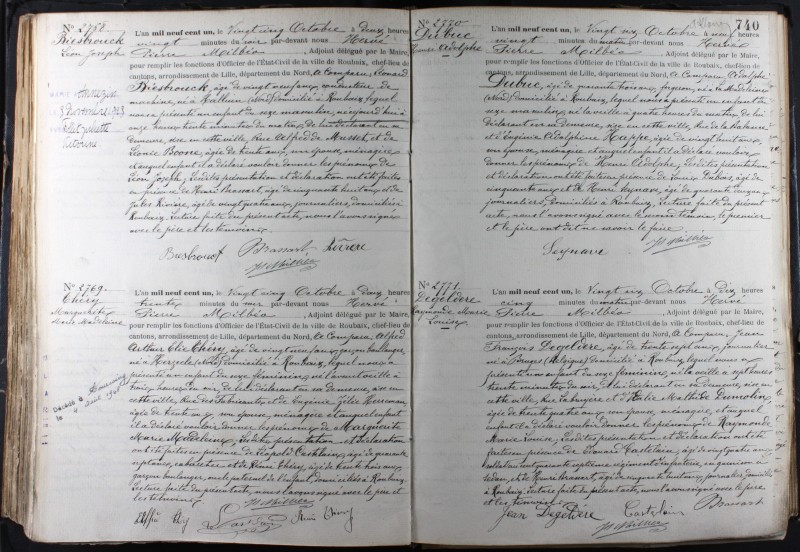 N° 2768.
Biesbrouck
Léon Joseph
L'an mil neuf cent un, le Vingt cinq Octobre à deux heures
vingt minutes du soir par-devant nous Hervé
Pierre Milbéo, Adjoint délégué par le Maire,
pour remplir les fonctions d'Officier de l'État-Civil de la ville de Roubaix, chef-lieu de
cantons, arrondissement de Lille, département du Nord, a Comparu Léonard
Biesbrouck, âgé de vingt neuf ans, conducteur de
machine, né à Halluin (Nord) domicilié à Roubaix, lequel
nous a présenté un enfant du sexe masculin, né aujourd'hui à
onze heures trente minutes du matin, de lui déclarant en sa
demeure, sise en cette ville, Rue Alfred de Musset et de
Léonie Boone, âgée de trente ans, son épouse, ménagère
et auquel enfant il a déclaré vouloir donner les prénoms de
Léon Joseph; Lesdites présentation et déclaration ont été faites
en présence de Henri Brassart, âgé de cinquante huit ans et de
Jules Rivière, âgé de vingt quatre ans, journaliers, domiciliés à
Roubaix. Lecture faite du présent acte, nous l'avons signé
avec le père et les témoins.
Biesbrouck Brassart Rivière
N° 2769.
Théry
Marguerite
Marie Madeleine
Décédée à
le 4 1901
L'an mil neuf cent un, le vingt cinq Octobre à deux heures
trente minutes du soir par-devant nous Hervé
Pierre Milbéo, Adjoint délégué par le Maire,
pour remplir les fonctions d'Officier de l'État-Civil de la ville de Roubaix, chef-lieu de
cantons, arrondissement de Lille, département du Nord, a Comparu Alfred
Arthur Elie Théry, âgé de vingt neuf ans, garçon boulanger,
né à (Nord) domicilié à Roubaix, lequel nous a
présenté un enfant du sexe féminin, né avant-veille à
trois heures du soir, de lui déclarant en sa demeure, sise en
cette ville, Rue des Fabricants et de Eugénie Zélie Herreman,
âgée de trente ans, son épouse, ménagère et auquel enfant
il a déclaré vouloir donner les prénoms de Marguerite
Marie Madeleine; Lesdites présentation et déclaration
ont été faites en présence de Léopold Castelain, âgé de quarante
sept ans, cabaretier et de Rémi Théry, âgé de trente trois ans,
garçon boulanger, oncle paternel de l'enfant, domiciliés à Roubaix,
Lecture faite du présent acte, nous l'avons signé avec le père et
les témoins.
Rémi Théry
740
N° 2770.
Dubuc
Henri Adolphe
L'an mil neuf cent un, le Vingt six Octobre à neuf heures
vingt minutes du matin par-devant nous Hervé
Pierre Milbéo, Adjoint délégué par le Maire,
pour remplir les fonctions d'Officier de l'État-Civil de la ville de Roubaix, chef-lieu de
cantons, arrondissement de Lille, département du Nord, a Comparu Adolphe
Dubuc, âgé de quarante trois ans, forgeron, né à La Madeleine
(Nord) domicilié à Roubaix, lequel nous a présenté un enfant du
sexe masculin, né la veille à quatre heures du matin de lui
déclarant en sa demeure, sise en cette ville, Rue de la Havane
et d'Eugénie Adolphine Happe, âgée de vingt huit ans,
son épouse, ménagère et auquel enfant il a déclaré vouloir
donner les prénoms de Henri Adolphe; Lesdites présentation
et déclaration ont été faites en présence de Louis Dubus, âgé de
cinquante ans et de Henri Seynave, âgé de quarante cinq ans,
journaliers, domiciliés à Roubaix, Lecture faite du présent
acte, nous l'avons signé avec le second témoin, le premier
et le père ont dit ne savoir le faire.
Seynave
N° 2771.
Degelière
Raymonde Marie
Louise
L'an mil neuf cent un, le Vingt six Octobre à Dix heures
cinq minutes du matin par-devant nous Hervé
Pierre Milbéo, Adjoint délégué par le Maire,
pour remplir les fonctions d'Officier de l'État-Civil de la ville de Roubaix, chef-lieu de
cantons, arrondissement de Lille, département du Nord, a Comparu Jean
François Degelière, âgé de trente sept ans, journalier
né à Bruges (Belgique) domicilié à Roubaix, lequel nous a
présenté un enfant du sexe féminin, né la veille à sept heures
trente minutes du soir, de lui déclarant en sa demeure, sise en
cette ville, Rue Labruyère et d'Elie Mathilde Dumolin,
âgée de trente quatre ans, son épouse, ménagère, et auquel
enfant il a déclaré vouloir donner les prénoms de Raymonde
Marie Louise; Lesdites présentation et déclaration ont été
faites en présence de Edouard Castelain, âgé de vingt quatre ans,
soldat au cent quarante septième régiment d'infanterie, en garnison à
Sedan, et de Henri Brassart, âgé de cinquante huit ans, journalier, domicilié
à Roubaix, Lecture faite du présent acte, nous l'avons signé avec le père
et les témoins.
Jean Degelière Castelain Brassart